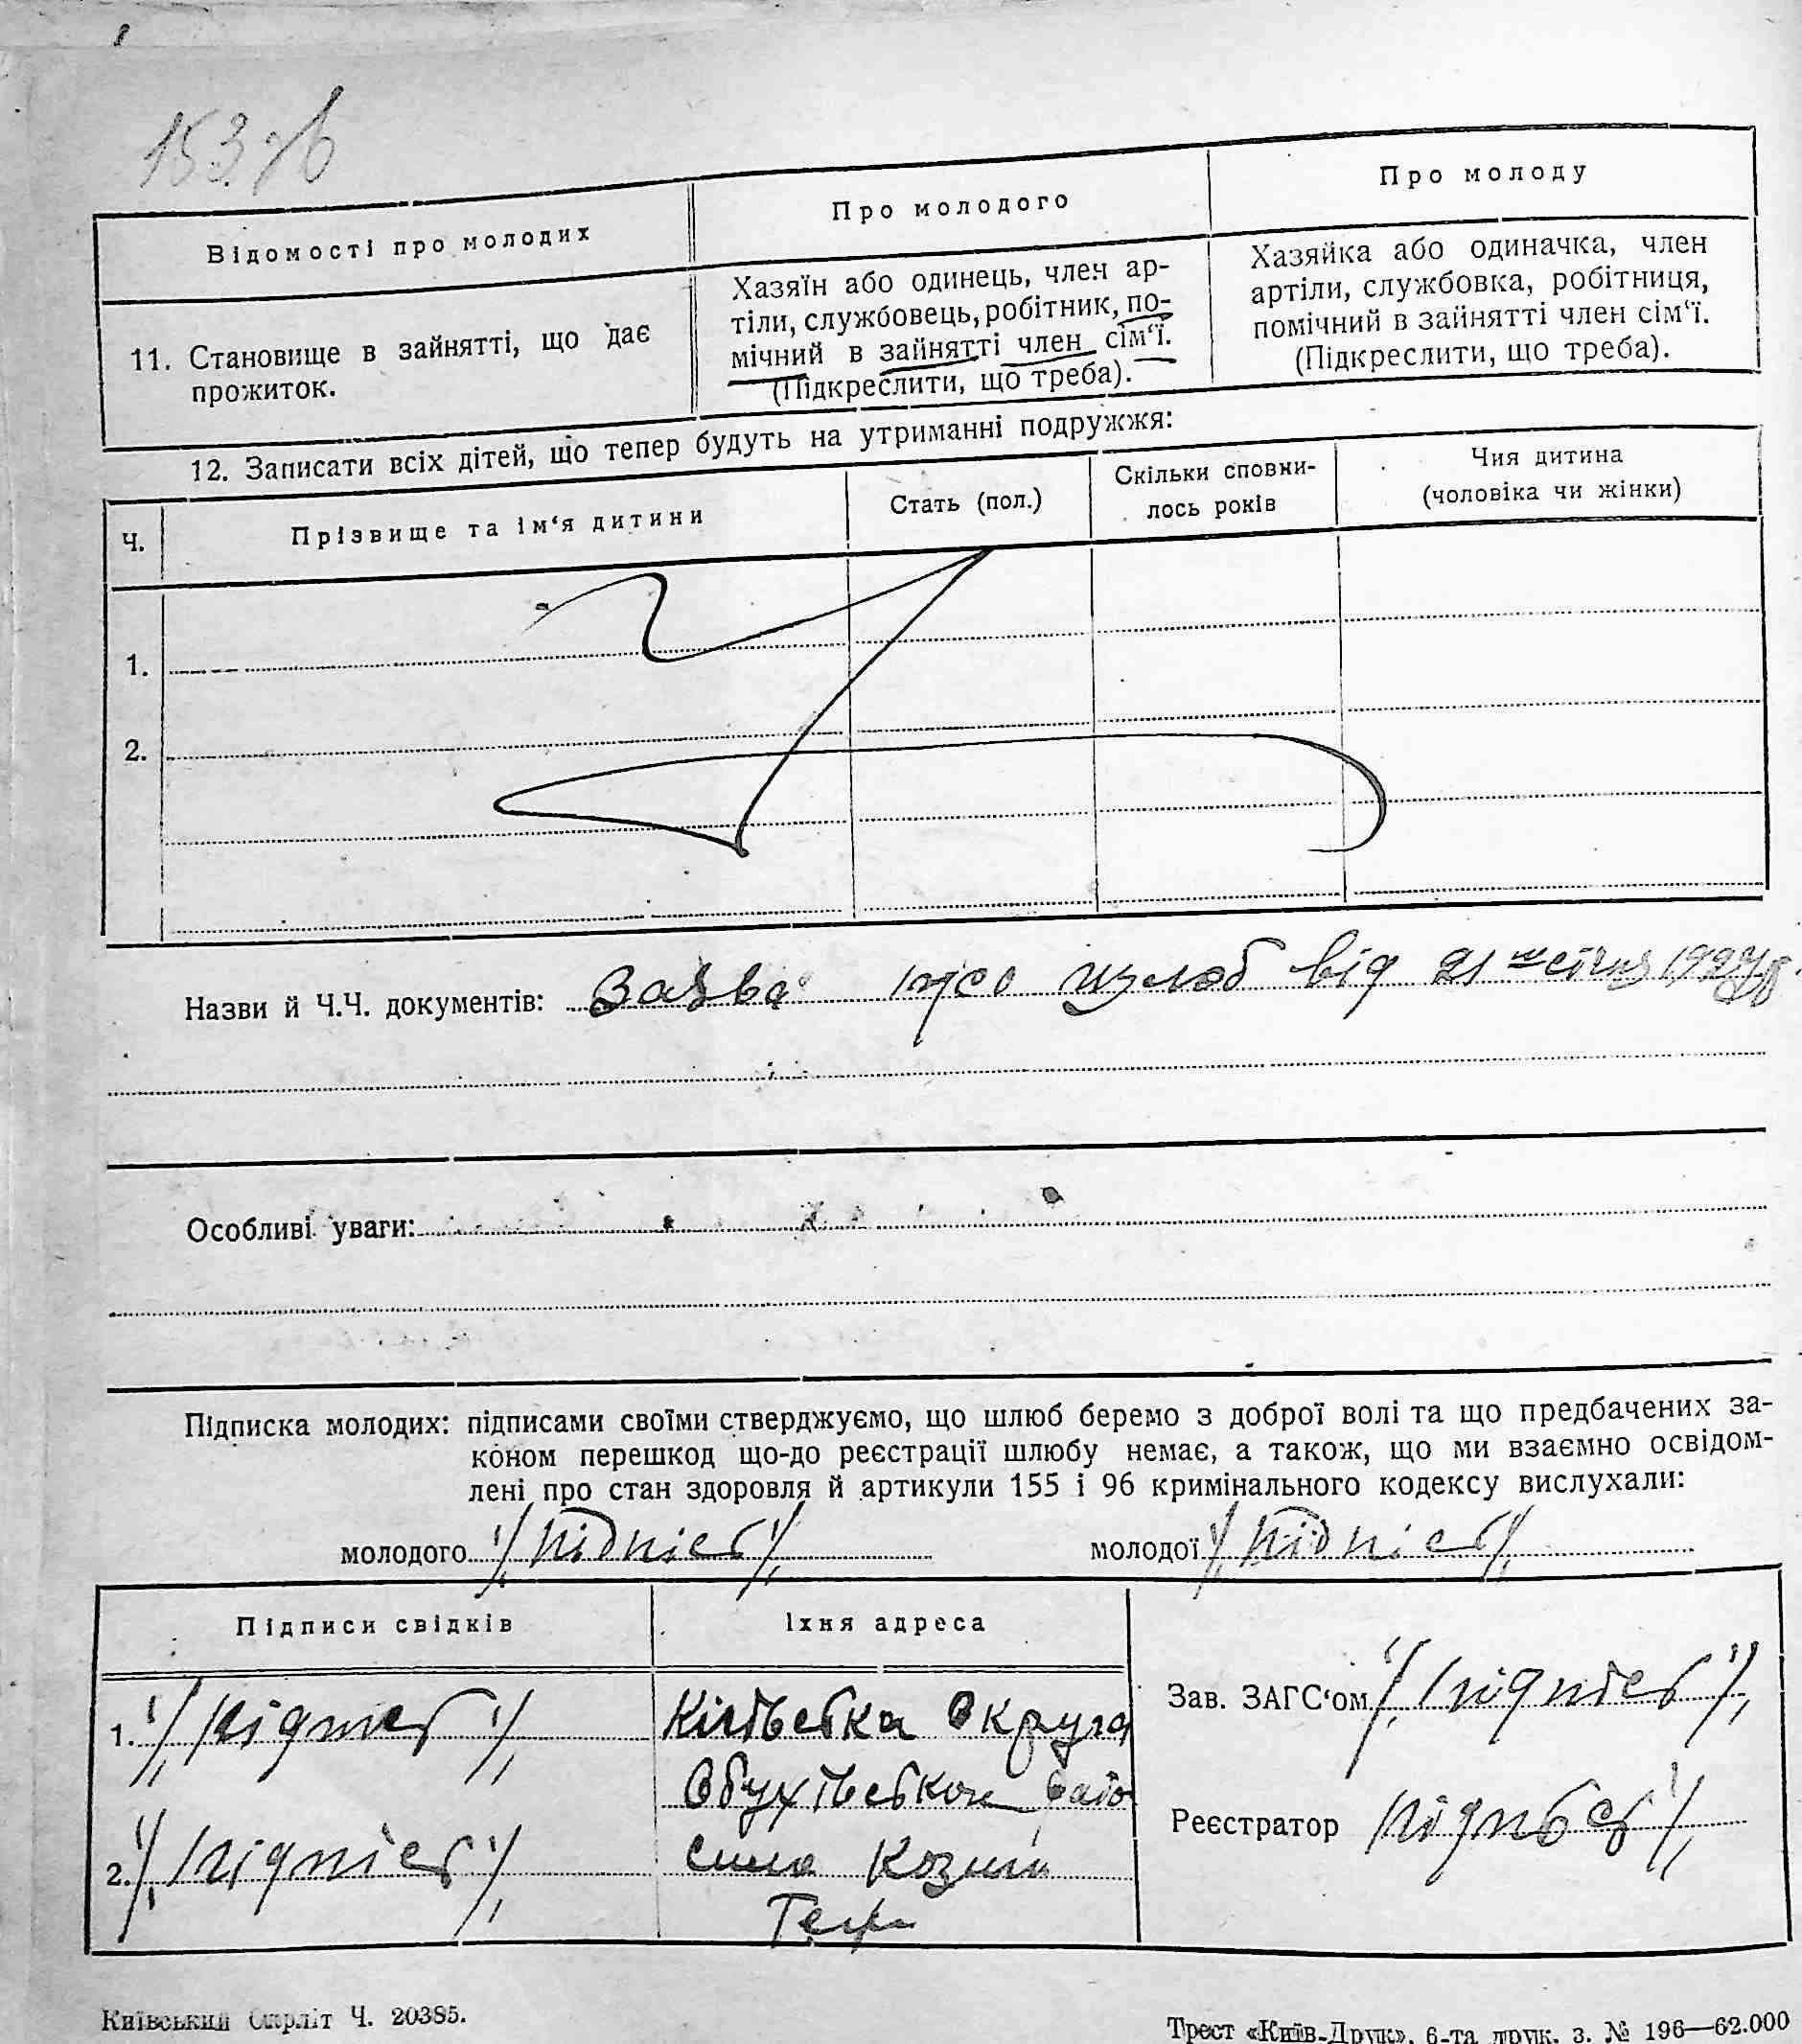 153 зв
Відомості про молодих
Про молодого
Про молоду
11. Становище в зайнятті, що дає
прожиток.
Хазяїн або одинець, член ар-
тіли, службовець, робітник, по-
мічний в зайнятті член сім‘ї.
(Підкреслити, що треба).
Хазяйка або одиначка, член
артіли, службовка, робітниця,
помічний в зайнятті член сім‘ї.
(Підкреслити, що треба).
12. Записати всіх дітей, що тепер будуть на утриманні подружжя:
Ч.
Прізвище та ім‘я дитини
Стать (пол.)
Скільки сповни-
лось років
Чия дитина
(чоловіка чи жінки)
1.
2.
Назви й Ч.Ч. документів: Заява про шлюб від 21 січня 1927 р.
Особливі уваги:
Підписка молодих: підписами своїми стверджуємо, що шлюб беремо з доброї волі та що предбачених за-
коном перешкод що-до реєстрації шлюбу немає, а також, що ми взаємно освідом-
лені про стан здоров‘я й артикули 155 і 96 кримінального кодексу вислухали:
молодого /підпіс/ молодої /підпіс/
Підписи свідків
Їхня адреса
1. /підпис/
Київська Округа
Обухівського райо
2. /підпіс/
село Козин
Зав. ЗАГС‘ом /підпіс/
Реєстратор підпьс/
Київський Окрліт Ч. 20385.
Трест «Київ-Друк», 6-та друк. з. № 196—62.000